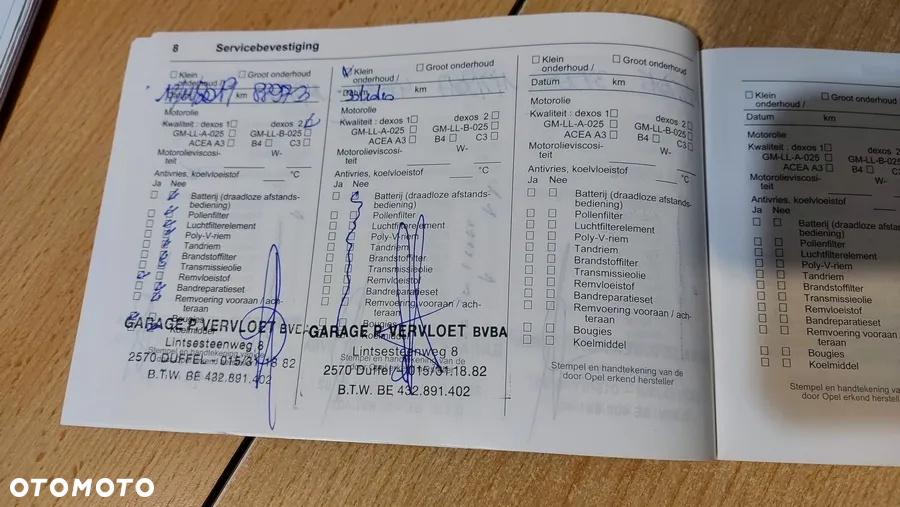 8 Servicebevestiging
Klein onderhoud /
Groot onderhoud
km 87973
Motorolie
Kwaliteit : dexos 1 dexos 2
GM-LL-A-025 GM-LL-B-025
ACEA A3 B4 C3
Motorolieviscosi- W-
teit
Antivries, koelvloeistof °C
Ja Nee
Batterij (draadloze afstands-
bediening)
Pollenfilter
Luchtfilterelement
Poly-V-riem
Tandriem
Brandstoffilter
Transmissieolie
Remvloeistof
Bandreparatieset
Remvoering vooraan / ach-
teraan
Bougies
Koelmiddel
GARAGE P VERVLOET BVBA
Lintsesteenweg 8
2570 DUFFEL - 015/31.18.82
B.T.W. BE 432.891.402
Klein
onderhoud /
Groot onderhoud
km
Motorolie
Kwaliteit : dexos 1 dexos 2
GM-LL-A-025 GM-LL-B-025
ACEA A3 B4 C3
Motorolieviscosi- W-
teit
Antivries, koelvloeistof °C
Ja Nee
Batterij (draadloze afstands-
bediening)
Pollenfilter
Luchtfilterelement
Poly-V-riem
Tandriem
Brandstoffilter
Transmissieolie
Remvloeistof
Bandreparatieset
Remvoering vooraan / ach-
teraan
Bougies
Koelmiddel
GARAGE P VERVLOET BVBA
Lintsesteenweg 8
Stempel en handtekening van de
2570 Duffel - 015/31.18.82
B.T.W. BE 432.891.402
Klein
onderhoud /
Groot onderhoud
Datum km
Motorolie
Kwaliteit : dexos 1 dexos 2
GM-LL-A-025 GM-LL-B-025
ACEA A3 B4 C3
Motorolieviscosi- W-
teit
Antivries, koelvloeistof °C
Ja Nee
Batterij (draadloze afstands-
bediening)
Pollenfilter
Luchtfilterelement
Poly-V-riem
Tandriem
Brandstoffilter
Transmissieolie
Remvloeistof
Bandreparatieset
Remvoering vooraan / ach-
teraan
Bougies
Koelmiddel
Stempel en handtekening van de
door Opel erkend hersteller
Klein
onderhoud /
Groot onderhoud
Datum km
Motorolie
Kwaliteit : dexos 1 dexos 2
GM-LL-A-025 GM-LL-B-025
ACEA A3 B4 C3
Motorolieviscosi- W-
teit
Antivries, koelvloeistof
Ja Nee
Batterij (draadloze afstands-
bediening)
Pollenfilter
Luchtfilterelement
Poly-V-riem
Tandriem
Brandstoffilter
Transmissieolie
Remvloeistof
Bandreparatieset
Remvoering vooraan / ach-
teraan
Bougies
Koelmiddel
Stempel en handtekening van de
door Opel erkend hersteller
OTOMOTO